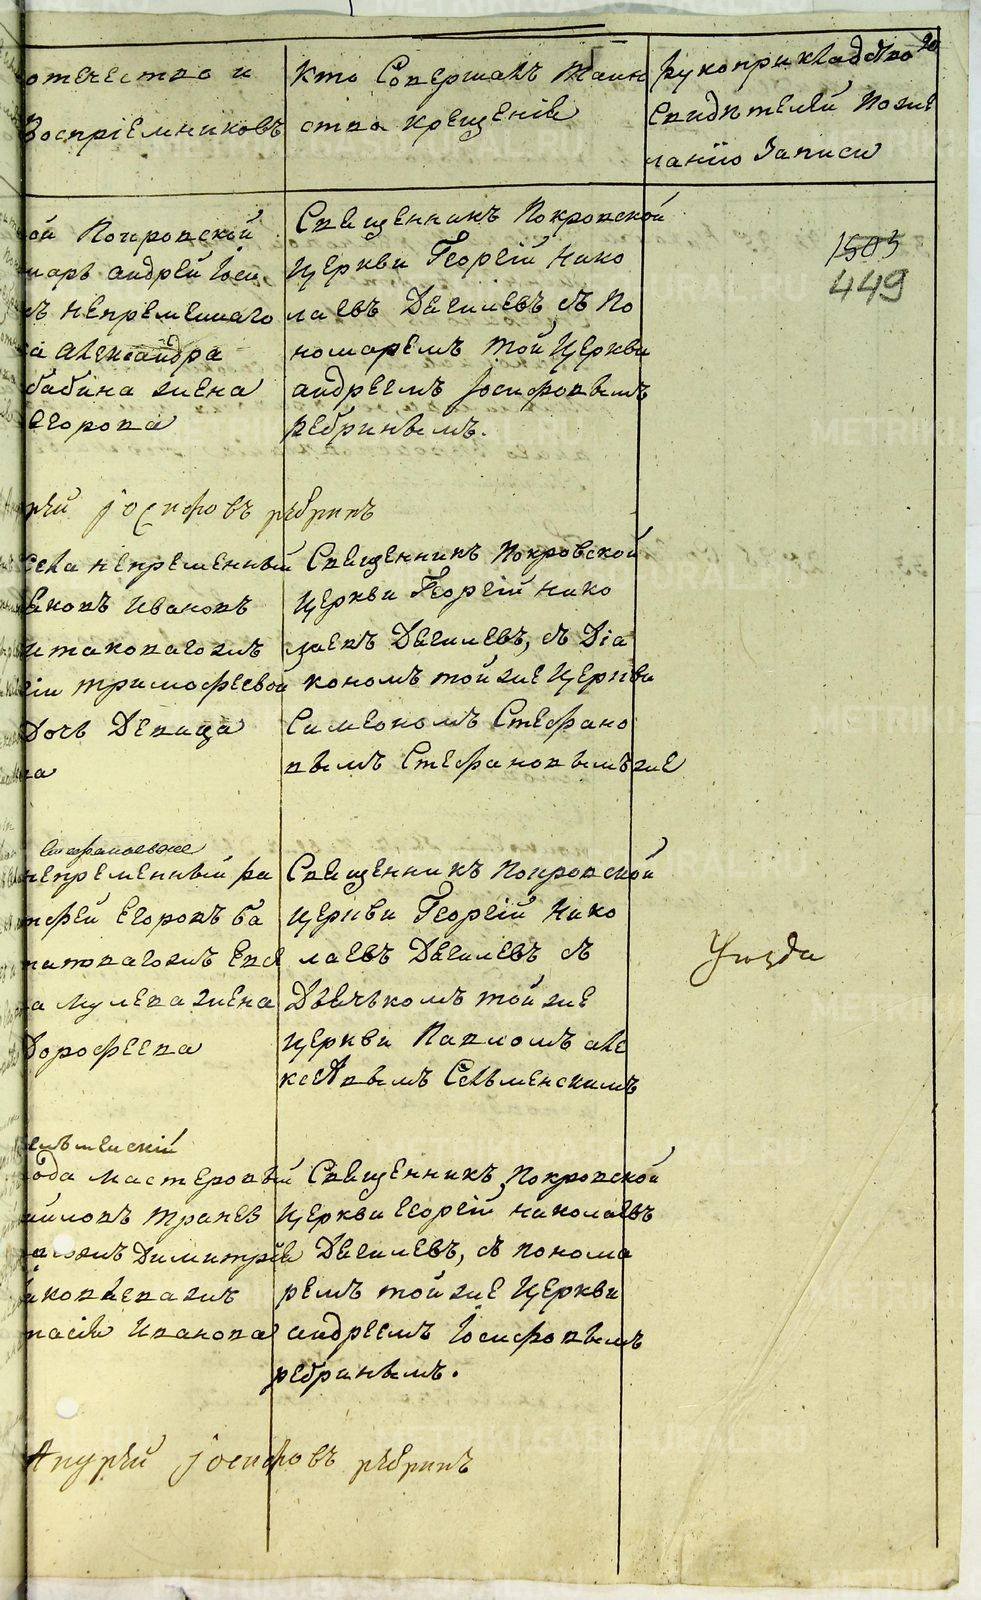 20
отечество и
Воспріемниковъ
Кто Совершалъ Таин
ство крещенія
рукоприкладство
Свидѣтелей По же
ланію Записи
1503
449
ой Покровской
марь андрей Іоси
ъ непремѣннаго
а александра
бабина жена
Егорова
Священникъ Покровской
Церкви Георгій Нико
лаевъ Дягилевъ съ По
номаремъ той Церкви
андреемъ Іосифовымъ
ребринымъ.
рѣй іосифовъ рѣбринъ
села непременный
Иванъ
итаковагожъ
Тримофеевой
Дочь Девица
ва
Священникъ Покровской
Церкви Георгій Нико
лаевъ Дягилевъ, съ Діа
кономъ тойже Церкви
Симеономъ Стефано
вымъ Стефановымъже
Стефановъже
непременный ра
Егоровъ ба
таковагожъ
жена
Дорофеева
Священникъ Покровской
Церкви Георгій Нико
лаевъ Дягилевъ съ
Дьячькомъ тойже
Церкви Павломъ але
ксеевымъ Сельменскимъ
Уѣзда
ельменскій
ода мастеровый
Димитрія
насія Иванова
Священникъ Покровской
Церкви Георгій николаевъ
Дягилевъ, съ понома
ремъ тойже Церкви
андреемъ Іосифовымъ
ребринымъ.
Андрѣй іосифовъ рѣбринъ